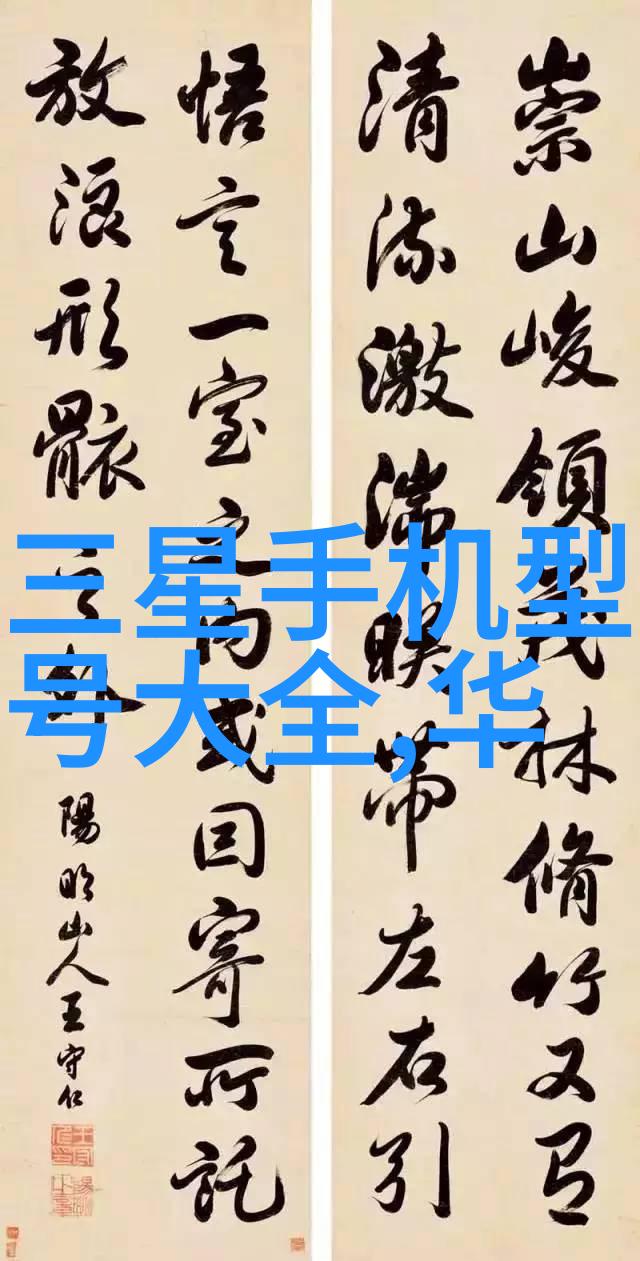 崇山峻領茂林脩竹又有
清流激湍暎帶左右引
悟言一室之内或因寄所託
放浪形骸之外
陽明山人王守仁
三星手机型
号大全,华